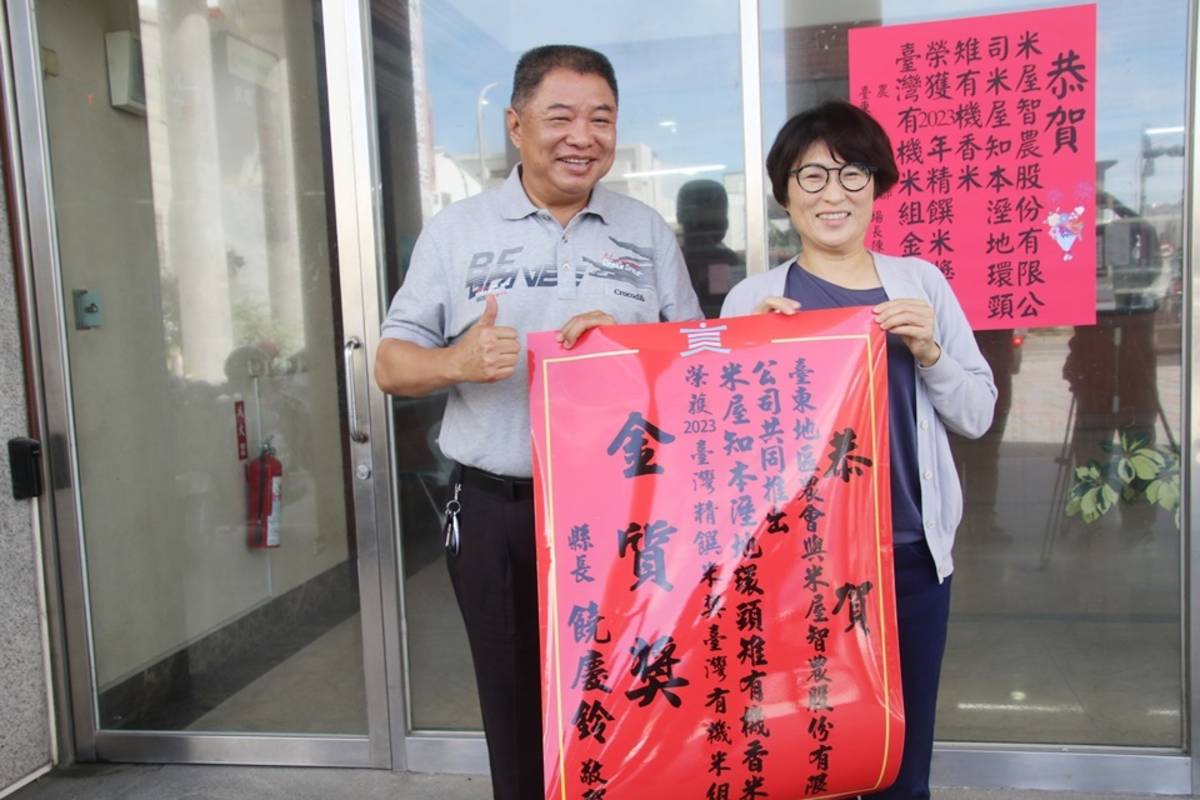 恭賀
米屋智農股份有限公
司米屋知本溼地環頸
雉有機香米
榮獲2023年精饌米獎
臺灣有機米組金
農
臺東
場長陳
恭賀
臺東地區農會與米屋智農股份有限
公司共同推出
米屋知本溼地環頸雉有機香米
榮獲2023臺灣精饌米獎臺灣有機米組
金質獎
縣長 饒慶鈴 敬賀
Crocodile